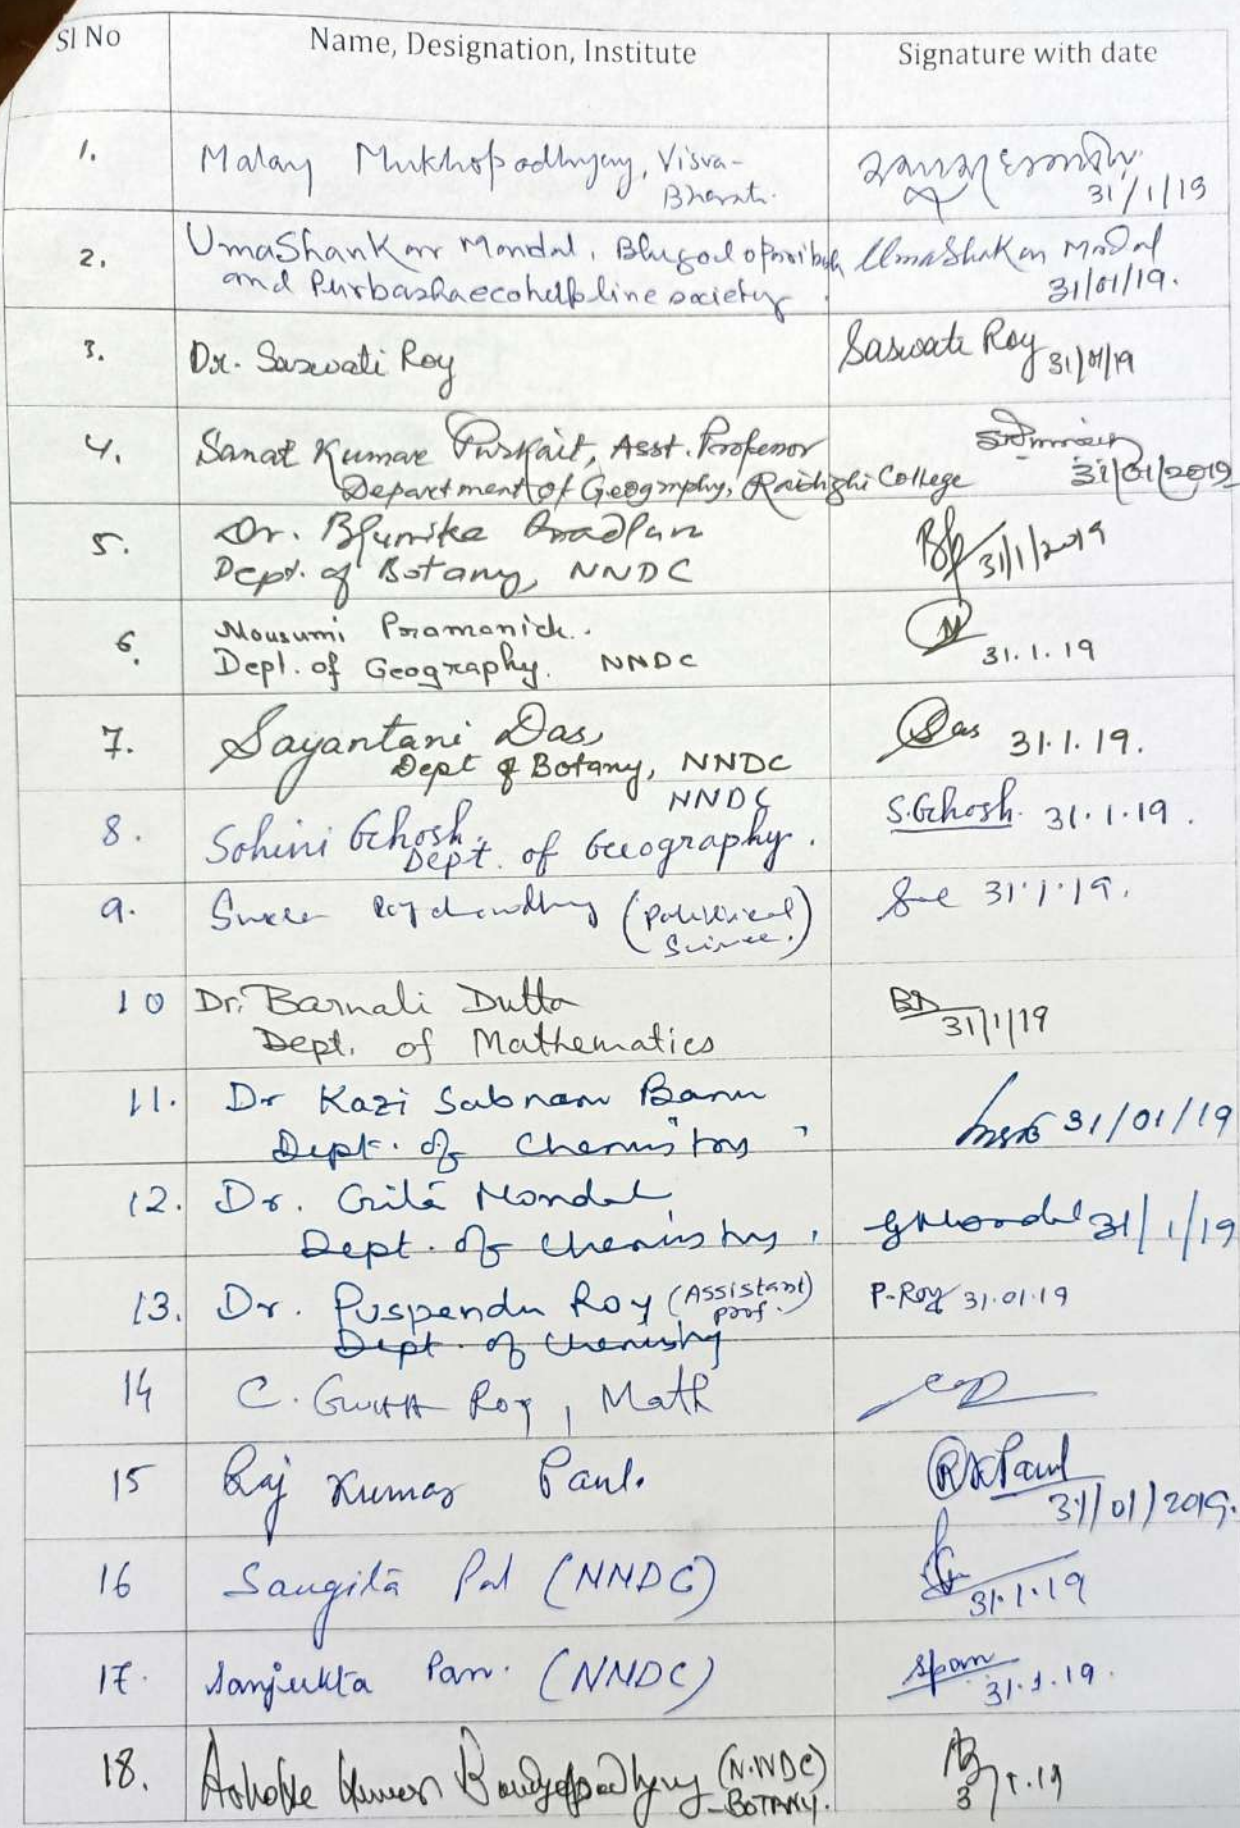 Sl No Name, Designation, Institute Signature with date
1. Malay Mukhopadhyay, Visva-
Bharati. 31/1/19
2. UmaShankar Mondal, Bhugol o paribesh UmaShakar Mondal
and Purbashaecohelpline society 31/01/19.
3. Dr. Saswati Roy Saswati Roy 31/01/19
4. Sanat Kumar Purkait, Asst. Professor
Department of Geography, Raidighi College 31/01/2019
5. Dr. Bhumika Pradhan
Dept. of Botany, NNDC 31/1/2019
6. Mousumi Pramanick.
Dept. of Geography. NNDC 31.1.19
7. Sayantani Das, Das 31.1.19.
Dept of Botany, NNDC
NNDC
8. Sohini Ghosh. S.Ghosh. 31.1.19.
Dept. of Geography.
9. Roychowdhury (Political 31.1.19.
Science.)
10 Dr. Barnali Dutta BD
Dept. of Mathematics 31/1/19
11. Dr Kazi Sabnam Banu
Dept. of Chemistry 31/01/19
12. Dr. Gita Mondal,
Dept. of Chemistry, GMondal 31/1/19
13. Dr. Puspendu Roy (Assistant P.Roy 31.01.19
prof.)
Dept. of Chemistry
14 C. GUHA Roy, Math
15 Raj Kumar Paul. RKPaul
31/01/2019.
16 Sangita Pal (NNDC)
31.1.19
17. Sanjukta Pan. (NNDC) Span
31.1.19.
18. Ashoke Kumar Bandyopadhyay (N.NDC)
-BOTANY.